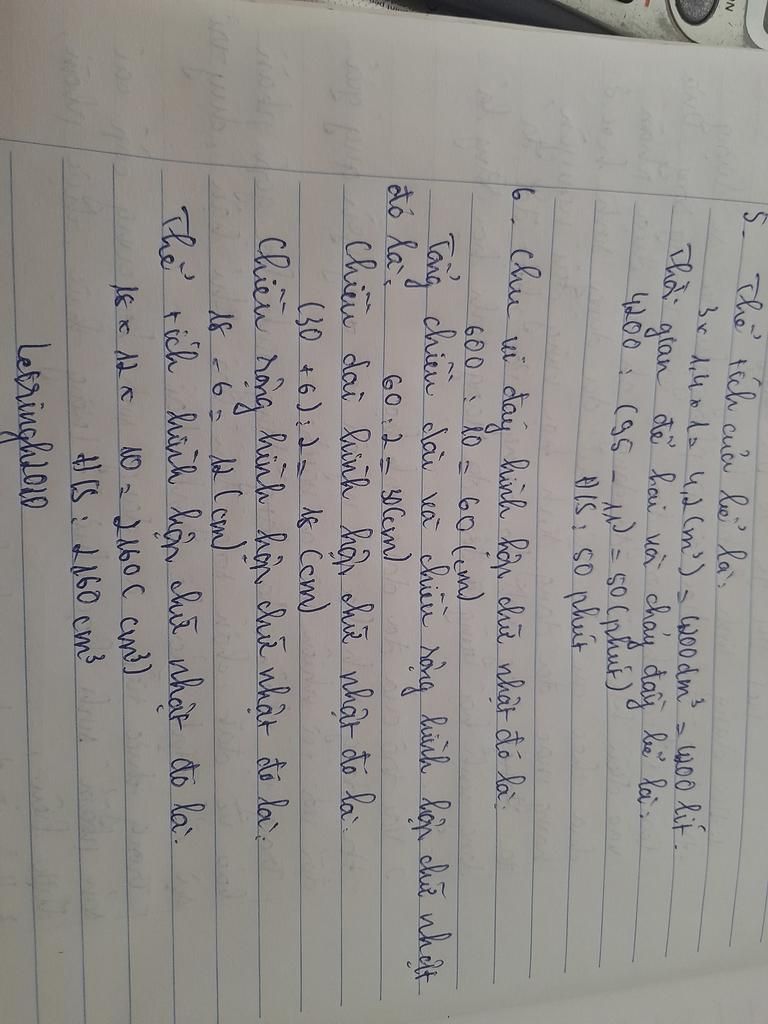 5. Thể tích của bể là:
3 x 1,4 x 1 = 4,2 (m³) = 4200 dm³ = 4200 lít.
Thời gian để hai vòi chảy đầy bể là:
4200 : (95 - 11) = 50 (phút)
Đ/S: 50 phút
6. Chu vi đáy hình hộp chữ nhật đó là:
600 : 10 = 60 (cm)
Tổng chiều dài và chiều rộng hình hộp chữ nhật
đó là: 60 : 2 = 30 (cm)
Chiều dài hình hộp chữ nhật đó là:
(30 + 6) : 2 = 18 (cm)
Chiều rộng hình hộp chữ nhật đó là:
18 - 6 = 12 (cm)
Thể tích hình hộp chữ nhật đó là:
18 x 12 x 10 = 2160 (cm³)
Đ/S: 2160 cm³